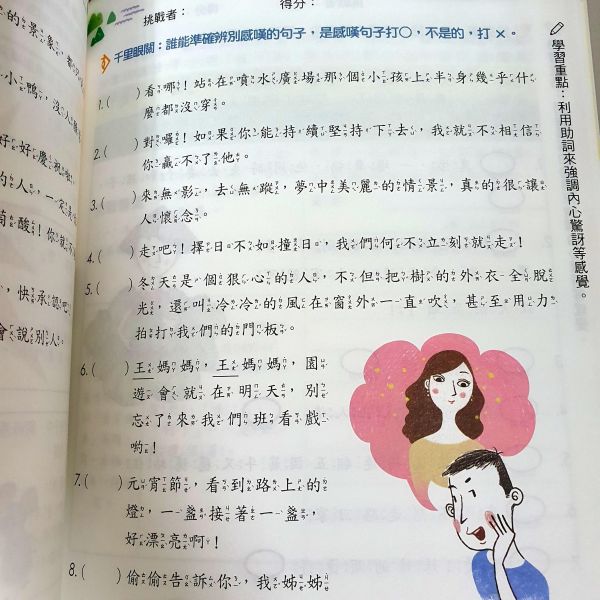 挑戰者：　得分：
千里眼關：誰能準確辨別感嘆的句子，是感嘆句子打○，不是的，打 ×。
學習重點：利用助詞來強調內心驚訝等感覺。
1.(　)看哪！站在噴水廣場那個小孩上半身幾乎什
麼都沒穿。
2.(　)對囉！如果你能持續堅持下去，我就不相信
你贏不了他。
3.(　)來無影，去無蹤，夢中美麗的情景，真的很讓
人懷念。
4.(　)走吧！擇日不如撞日，我們何不立刻就走！
5.(　)冬天是個狠心的人，不但把樹的外衣全脫
光，還叫冷冷的風在窗外一直吹，甚至用力
拍打我們的門板。
6.(　)王媽媽，王媽媽，園
遊會就在明天，別
忘了來我們班看戲
喲！
7.(　)元宵節，看到路上的
燈，一盞接著一盞，
好漂亮啊！
8.(　)偷偷告訴你，我姊姊
的景象
小鴨，沒
好好慶祝
的人，一定
葡酸！你
，快承認吧
會說別人。